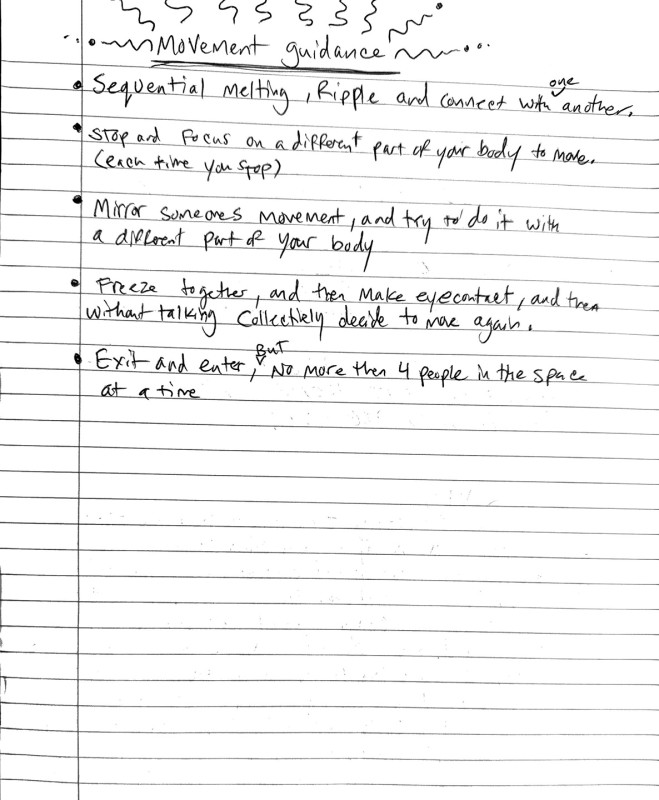 Movement guidance
• Sequential melting, Ripple and connect with one another.
• Stop and Focus on a different part of your body to move.
(each time you stop)
• Mirror someones movement, and try to do it with
a different part of your body
• Freeze together, and then make eyecontact, and then
without talking collectively decide to move again.
• Exit and enter, But No more then 4 people in the space
at a time